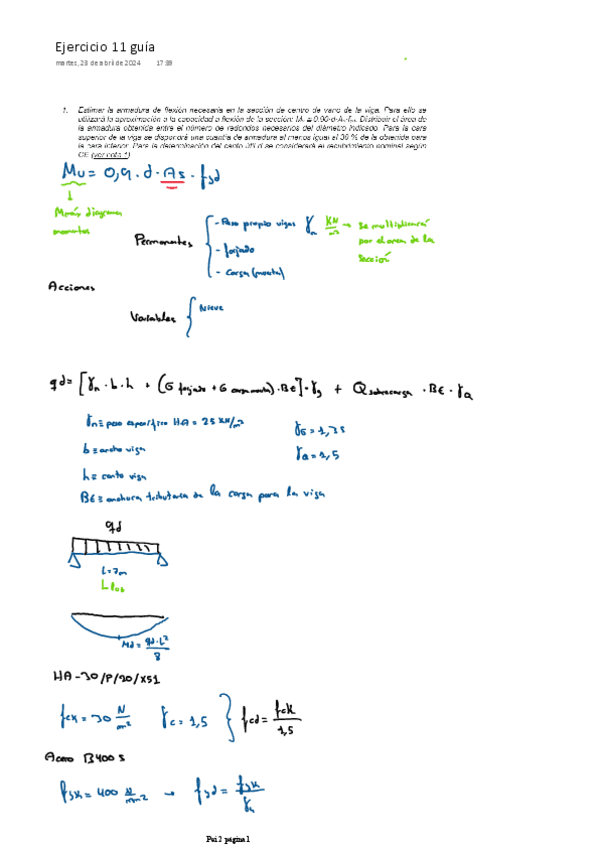 Ejercicio 11 guía
martes, 23 de abril de 2024 17:39
1. Estimar la armadura de flexión necesaria en la sección de centro de vano de la viga. Para ello se
utilizará la aproximación a la capacidad a flexión de la sección: Mᵤ ≅ 0.90·d·Aₛ·fₛd. Distribuir el área de
la armadura obtenida entre el número de redondos necesarios del diámetro indicado. Para la cara
superior de la viga se dispondrá una cuantía de armadura al menos igual al 30 % de la obtenida para
la cara inferior. Para la determinación del canto útil d se considerará el recubrimiento nominal según
CE (ver nota 1)
Mu = 0,9 · d · As · fsd
↓
Menús diagrama
momentos
Permanentes
- Peso propio vigas γn KN/m³ → se multiplicará
por el area de la
sección
- forjado
- Carga (muerta)
Acciones
Variables { Nieve
qd = [γn · b · h + (G forjado + G · BE] · γg + Q sobrecarga · BE · γQ
γn ≡ peso específico HA = 25 KN/m³
γG = 1,35
b ≡ ancho viga
γQ = 1,5
h ≡ canto viga
BE ≡ anchura tributaria de la carga para la viga
qd
L = 7m
Md = qd · L²/8
HA-30/P/20/XS1
fck = 30 N/mm² γc = 1,5 } fcd = fck/1,5
Acero B400s
fsk = 400 N/mm² → fsd = fsk/γs
Psi 2 página 1